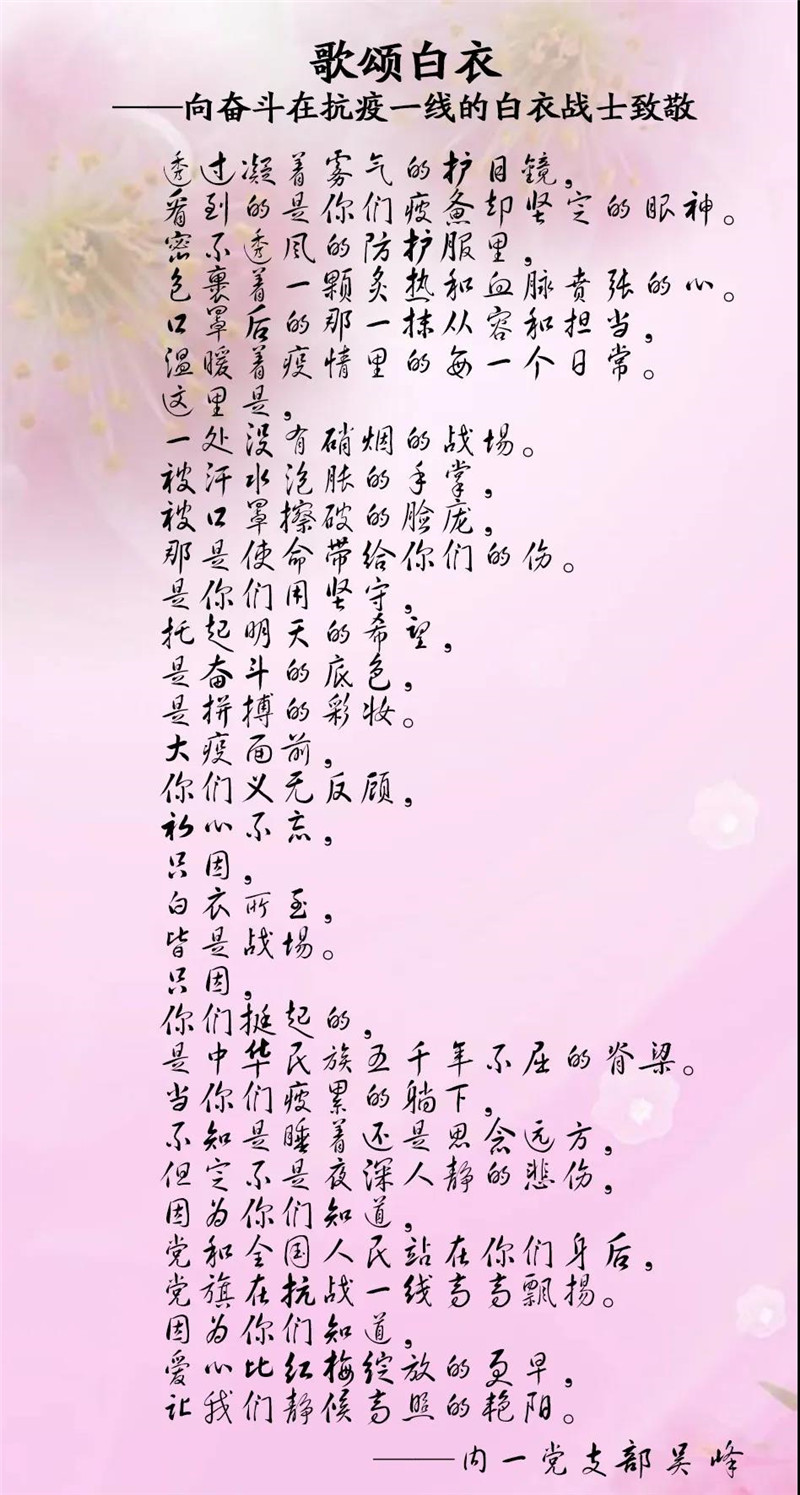 歌颂白衣
——向奋斗在抗疫一线的白衣战士致敬
透过凝着雾气的护目镜，
看到的是你们疲惫却坚定的眼神。
密不透风的防护服里，
包裹着一颗炙热和血脉贲张的心。
口罩后的那一抹从容和担当，
温暖着疫情里的每一个日常。
这里是，
一处没有硝烟的战场。
被汗水泡胀的手掌，
被口罩擦破的脸庞，
那是使命带给你们的伤。
是你们用坚守，
托起明天的希望，
是奋斗的底色，
是拼搏的彩妆。
大疫面前，
你们义无反顾，
初心不忘，
只因，
白衣所至，
皆是战场。
只因，
你们挺起的，
是中华民族五千年不屈的脊梁。
当你们疲累的躺下，
不知是睡着还是思念远方，
但定不是夜深人静的悲伤，
因为你们知道，
党和全国人民站在你们身后，
党旗在抗战一线高高飘扬。
因为你们知道，
爱心比红梅绽放的更早，
让我们静候高照的艳阳。
——内一党支部吴峰